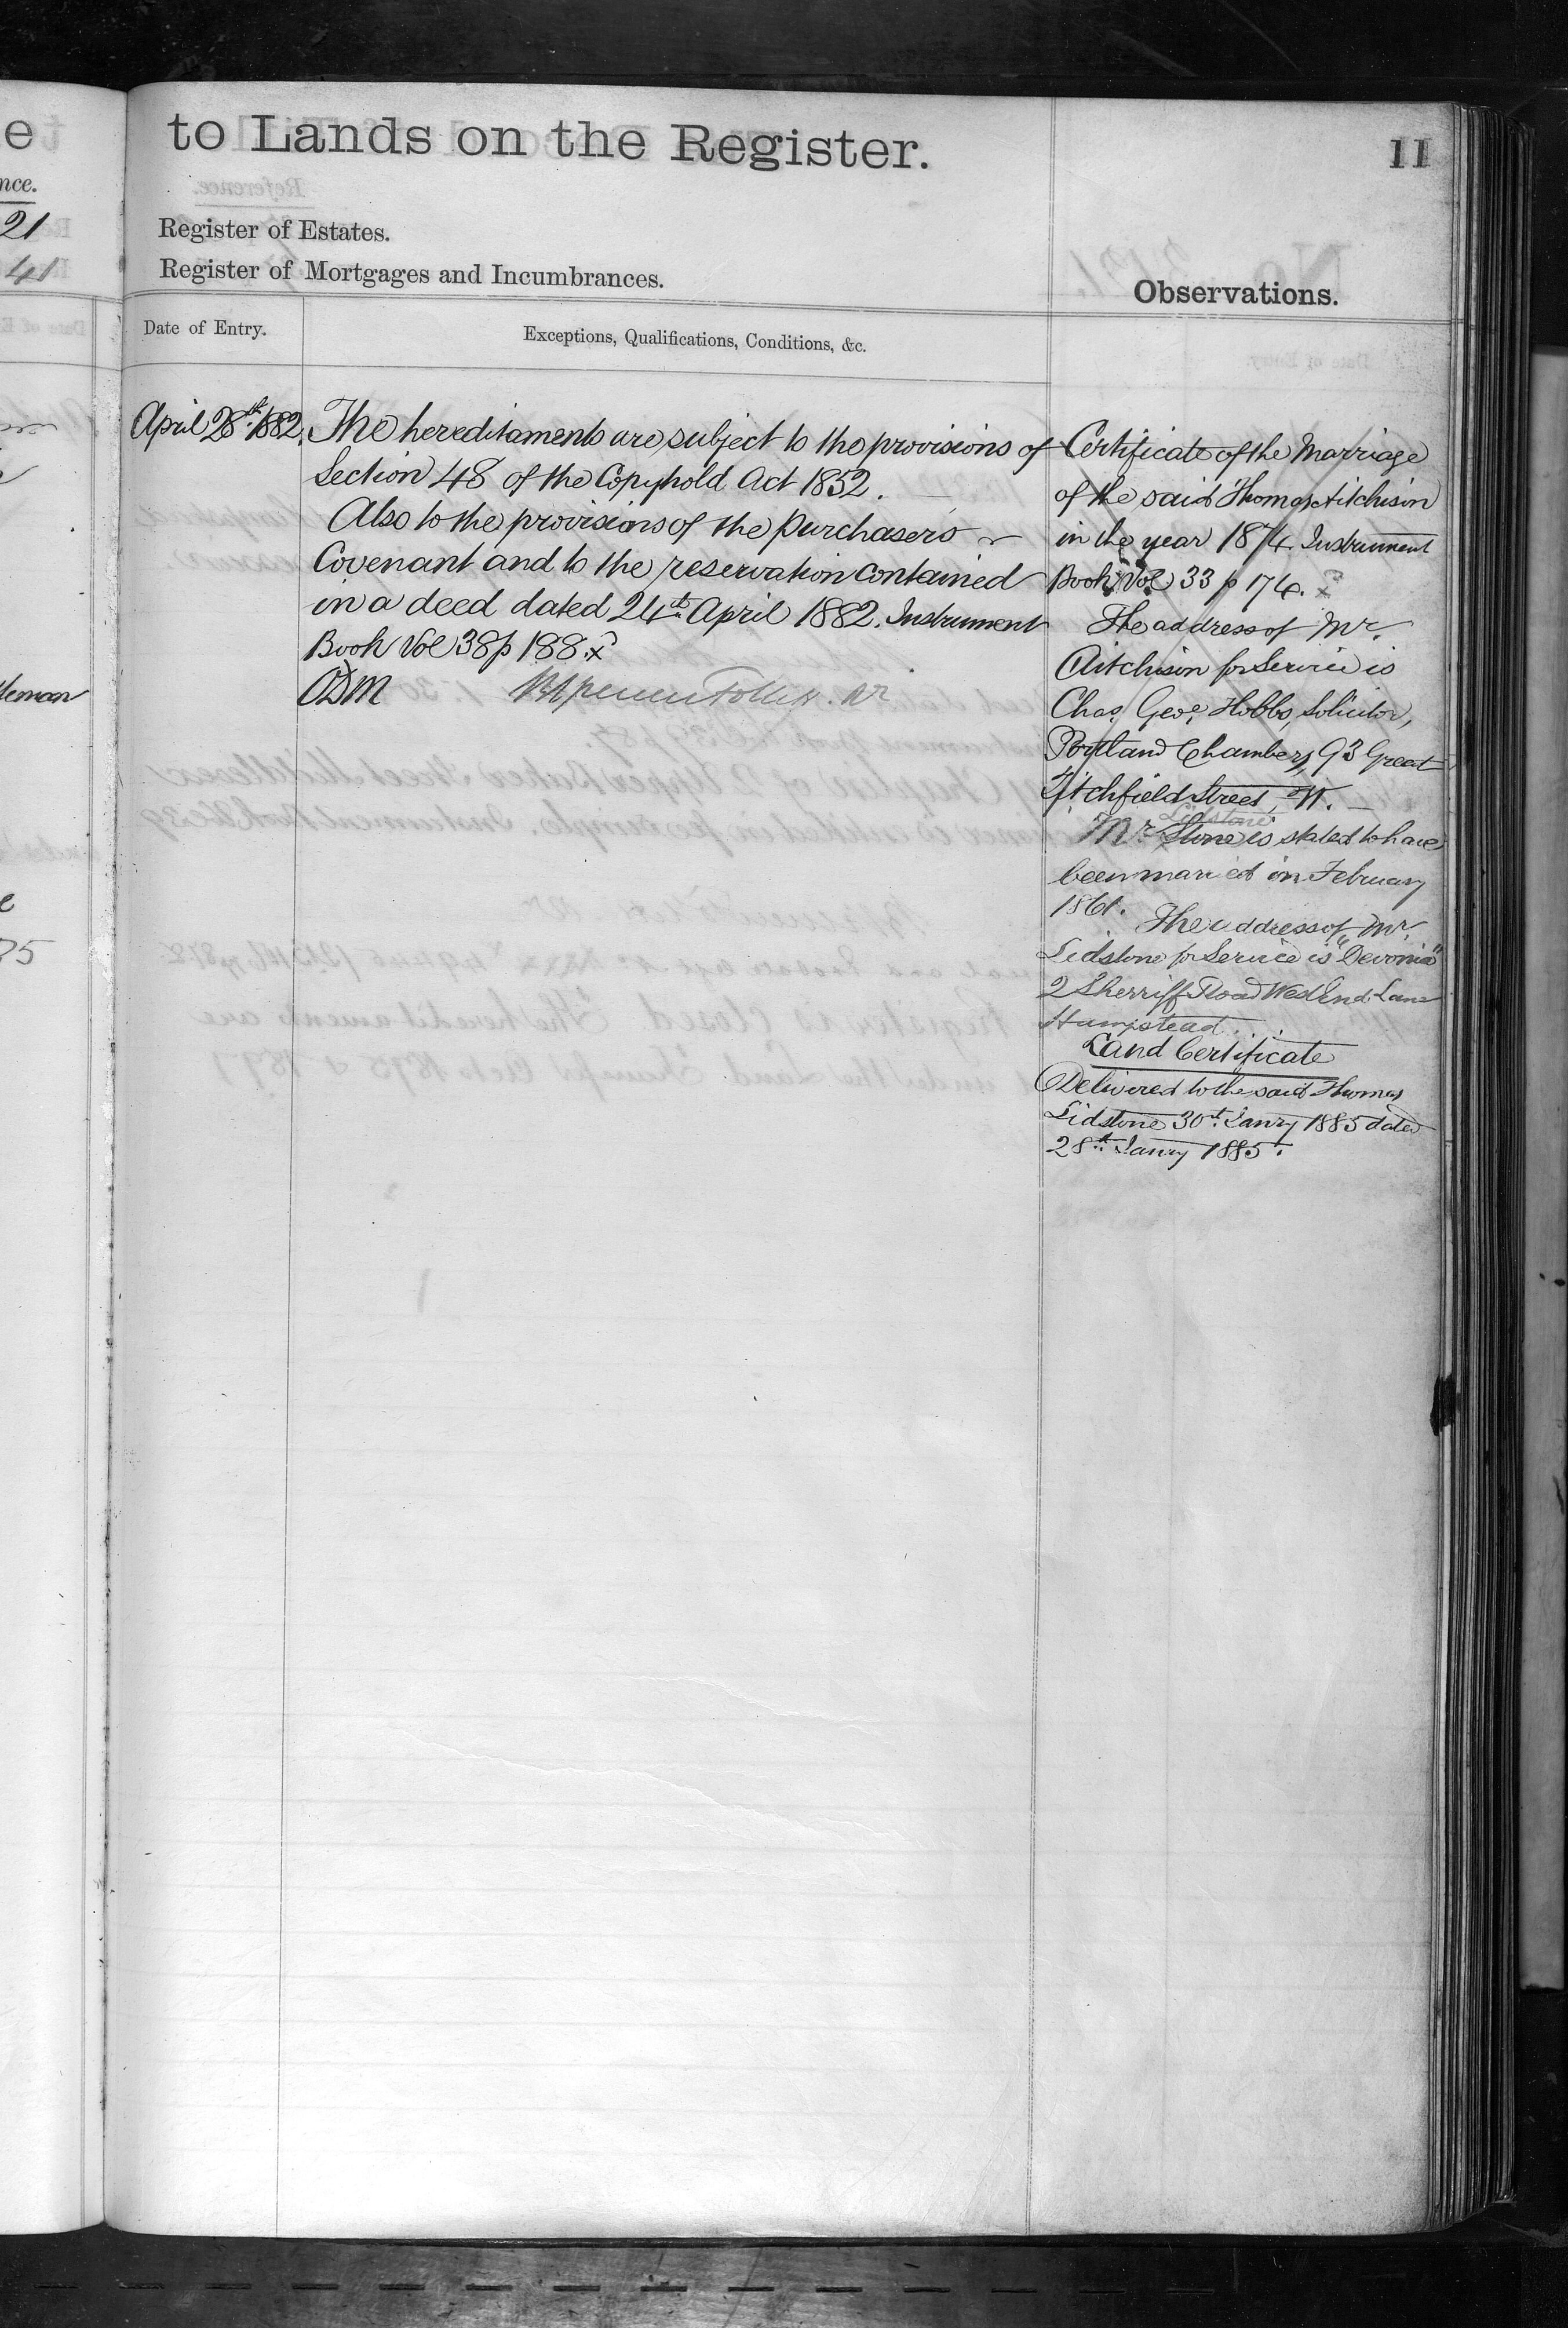 e
nce.
21
41
leman
e
to Lands on the Register.
11
Register of Estates.
Register of Mortgages and Incumbrances.
Observations.
Date of Entry.
Exceptions, Qualifications, Conditions, &c.
April 28th 1882.
The hereditaments are subject to the provisions of
Section 48 of the Copyhold Act 1852.
Also to the provisions of the purchasers
Covenant and to the reservation contained
in a deed dated 24th April 1882. Instrument
Book Vol 38 p 188. x
Certificate of the Marriage
of the said Thomas Aitchison
in the year 1874. Instrument
Book Vol 33 p 174. x
The address of Mr.
Aitchison for Service is
Chas. Geoe. Hobbs, Solicitor,
Portland Chambers, 93 Great
Titchfield Street, W.
Lidstone
Mr Stone is stated to have
been married in February
1861.
The address of Mr.
Lidstone for Service is "Devonia"
2 Sherriff Road West End Lane
Hampstead.
Land Certificate
Delivered to the said Thomas
Lidstone 30th Janry 1885 dated
28th Janry 1885.